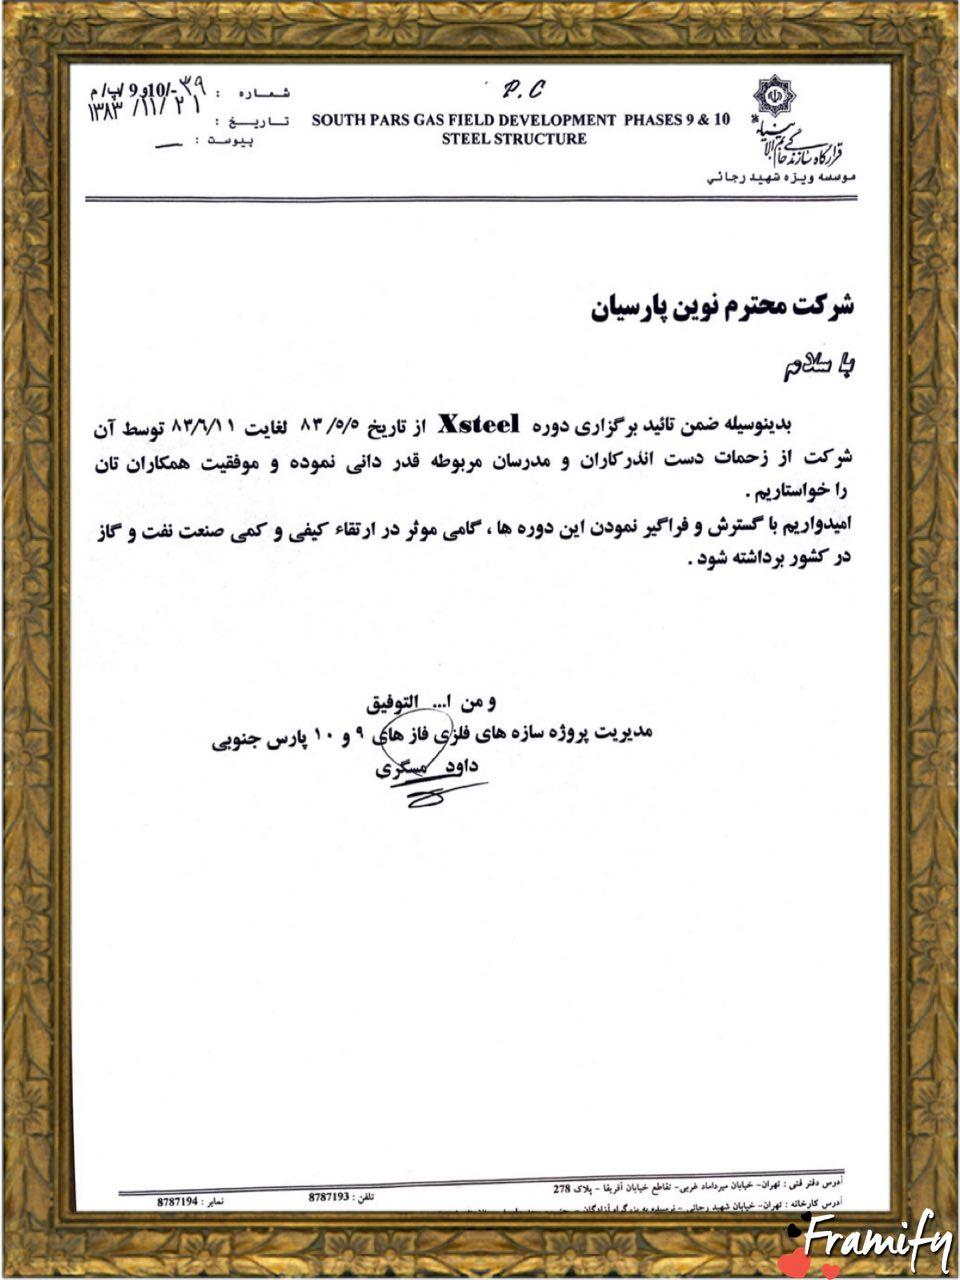 شماره : ۳۹-/10و9 /پ/ م
تاریخ : ۱۳۸۳/۱۱/۲۱
پیوست : —
P.C
SOUTH PARS GAS FIELD DEVELOPMENT PHASES 9 & 10
STEEL STRUCTURE
قرارگاه سازندگی خاتم الانبیاء
موسسه ویژه شهید رجائی
شرکت محترم نوین پارسیان
با سلام
بدینوسیله ضمن تائید برگزاری دوره Xsteel از تاریخ ۸۳/۵/۵ لغایت ۸۳/۶/۱۱ توسط آن
شرکت از زحمات دست اندرکاران و مدرسان مربوطه قدر دانی نموده و موفقیت همکاران تان
را خواستاریم .
امیدواریم با گسترش و فراگیر نمودن این دوره ها ، گامی موثر در ارتقاء کیفی و کمی صنعت نفت و گاز
در کشور برداشته شود .
و من ا... التوفیق
مدیریت پروژه سازه های فلزی فاز های ۹ و ۱۰ پارس جنوبی
داود مسگری
آدرس دفتر فنی : تهران- خیابان میرداماد غربی- تقاطع خیابان آفریقا - پلاک 278
تلفن : 8787193
نمابر : 8787194
آدرس کارخانه : تهران- خیابان شهید رجائی - نرسیده به بزرگراه آزادگان
Framify